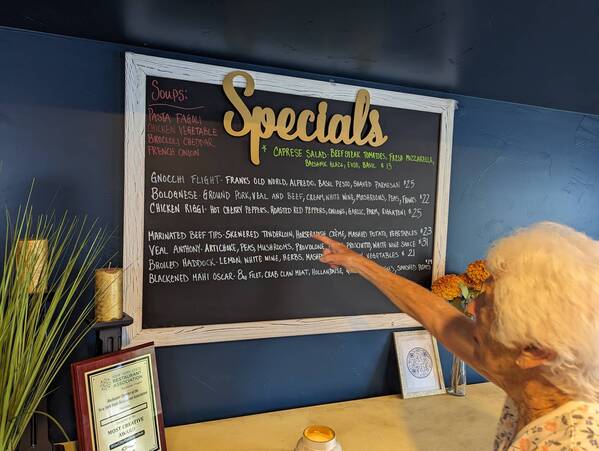 Specials
Soups:
Pasta Fagoli
Chicken Vegetable
Broccoli Cheddar
French Onion
* Caprese Salad- Beefsteak Tomatoes, Fresh Mozzarella,
Balsamic Glaze, Evoo, Basil $13
Gnocchi Flight- Franks Old World, Alfredo, Basil Pesto, Shaved Parmesan $25
Bolognese- Ground Pork, Veal and Beef, Cream, White Wine, Mushrooms, Peas, Franks $22
Chicken Riggi- Hot Cherry Peppers, Roasted Red Peppers, Onions, Garlic, Parm, Rigatoni $25
Marinated Beef Tips- Skewered Tenderloin, Horseradish Crème, Mashed Potato, Vegetables $23
Veal Anthony- Artichoke, Peas, Mushrooms, Provolone, Prosciutto, White Wine Sauce $31
Broiled Haddock- Lemon, White Wine, Herbs, Vegetables $21
Blackened Mahi Oscar- 8oz Filet, Crab Claw Meat, Hollandaise, Smashed
RESTAURANT
ASSOCIATION
MOST CREATIVE
AWARD